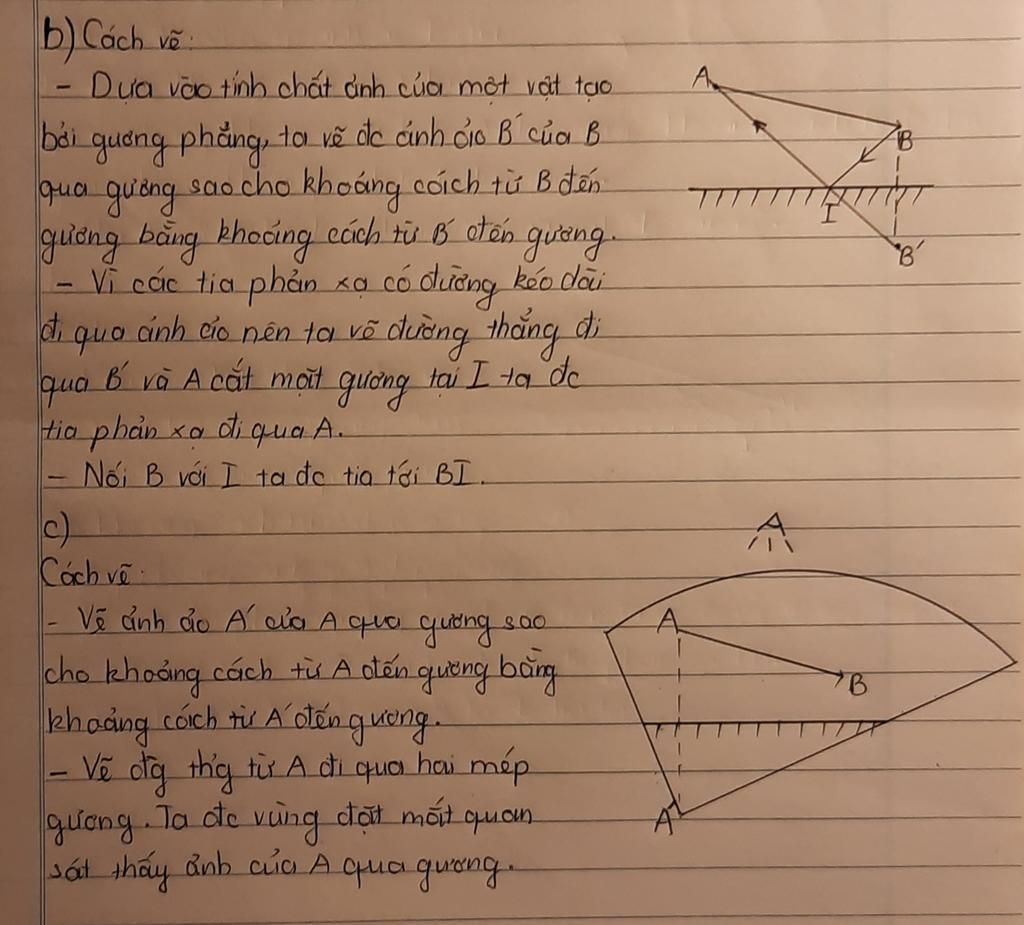 b) Cách vẽ:
- Dựa vào tính chất ảnh của một vật tạo
bởi gương phẳng, ta vẽ đc ảnh ảo B' của B
qua gương sao cho khoảng cách từ B đến
gương bằng khoảng cách từ B' đến gương.
- Vì các tia phản xạ có đường kéo dài
đi qua ảnh ảo nên ta vẽ đường thẳng đi
qua B' và A cắt mặt gương tại I ta đc
tia phản xạ đi qua A.
- Nối B với I ta đc tia tới BI.
A
B
I
B'
c)
Cách vẽ:
- Vẽ ảnh ảo A' của A qua gương sao
cho khoảng cách từ A đến gương bằng
khoảng cách từ A' đến gương.
- Vẽ đg thg từ A đi qua hai mép
gương. Ta đc vùng đặt mắt quan
sát thấy ảnh của A qua gương.
A
A
B
A'